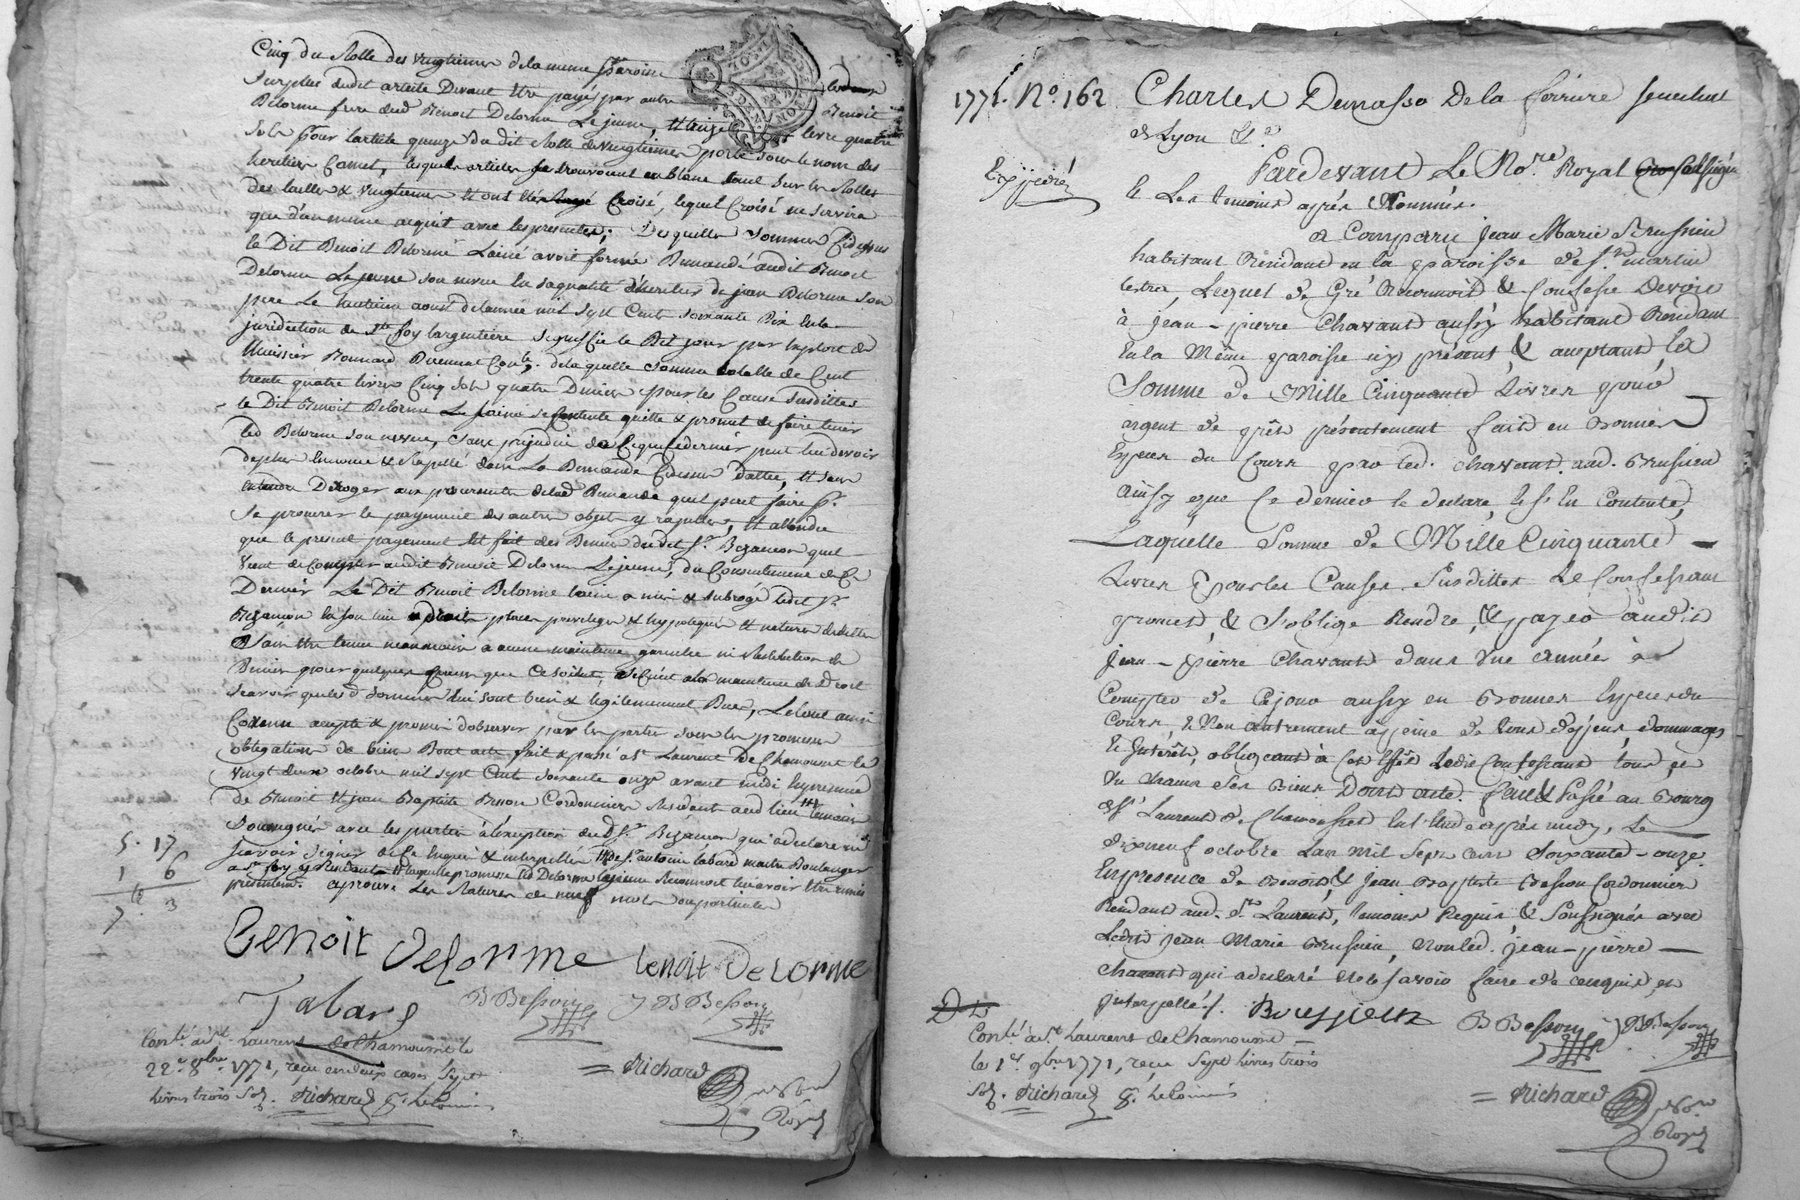 Cinq du Rolle des vingtiemes de la meme Parroisse
Surplus dudit article Devant Etre payés par autre
Delorme frere dud Benoit Delorme Le jeune, Et seize livre quatre
Sols Pour l'article quinze du dit Rolle des vingtiemes porté sous le nom des
heritiers Comet, lesquels articles se trouvent en blanc tant sur les Rolles
des tailles & vingtiemes Et ont été Croisé, lequel Croisé ne servira
que d'un meme acquit avec les presentes; Desquelles sommes Cidessus
le Dit Benoit Delorme L'ainé avoit formé Demande audit Benoit
Delorme Le jeune son neveu En sa qualité d'heritier de jean Delorme son
pere Le huitieme aout de l'année mil sept Cent soixante dix En la
juridiction de Ste foy l'argentiere signiffiée le Dit jour par Exploit de
L'huissier de laquelle somme totalle de Cent
trente quatre livres Cinq Sols quatre Deniers pour les Cause susdittes
le Dit Benoit Delorme L'ainé se Contente quitte & promet de faire tenir
led Delorme son neveu, sans prejudice de Ce que Ce dernier peut lui devoir
de plus Enoncé & Rapellé dans La Demande Cidessus dattée, Et sans
Entendre Deroger aux poursuites de lad Demande qu'il peut faire Pr
se procurer le payement des autres objets y rapellés, Et attendu
que le present payement Est fait des Deniers dudit Sr. Bezancon qu'il
vient de Compter audit Benoit Delorme Le jeune, du Consentement de Ce
Dernier Le Dit Benoit Delorme l'ainé a mis & subrogé ledit Sr
Bezancon En son lieu droits places privileges & hypoteques Et nature de dettes
Sans Etre tenu neanmoins a aucune maintenue garantie ni Restitution de
Deniers pour quelques Causes que Ce soient, si Ce n'est a la maintenue de Droit
scavoir que les d sommes lui sont bien & legitimement Dues, Le tout ainsi
Convenu accepté & promis d'observer par les parties sous les promesses
obligations de biens Dont acte fait & passé a St Laurent De Chamousset le
vingt deux octobre mil sept Cent soixante onze avant midi En presence
de Benoit Et jean Baptiste Besson Cordonniers Residant aud lieu temoins
Soussignés avec les parties à l'exception dud Sr Bezancon qui a declaré ne
scavoir signer de Ce Enquis & interpellé Et de Sr antoine tabard maitre Boulanger
a Ste foy y Residant led Delorme le jeune Reconnoit lui avoir Eté remis
presentement. aprouvé Les Ratures de neuf mots
5. 17
1 6
3
7
Benoit Delorme benoit Delorme
Tabard BBesson JBBesson
Conlé a St Laurent de Chamousset le
22e 8bre 1771, reçu en deux cases, Sept
livres trois Sols. Richard Richard
nore Royal
1771. No. 162 Charles Dumasso De la ferriere senechal
de Lyon &a.
Expedié
Pardevant Le Nore. Royal soussigné
& Les temoins après Nommés.
a Comparu jean Marie Brussieu
habitant Residant en la paroisse de St martin
lestra, Lequel de Gré Reconnoit & Confesse Devoir
à jean-pierre Chavant aussy habitant Residant
En la Même paroisse icy présent & acceptant, la
Somme de Mille Cinquante Livres pour
argent de prêt présentement fait en Bonnes
Especes du Cours par led. Chavant. aud. Brussieu
ainsy que Ce dernier le declare, & s'en Contente,
Laquelle Somme de Mille Cinquante —
Livres pour les Causes Susdittes Le Confessant
promet, & S'oblige Rendre, & payer audit
jean-pierre Chavant dans Une année à
Compter de Cejour aussy en Bonnes Especes du
Cours, & Non autrement à peine de tous depens, dommages
& interêts, obligeant à Cet Effet Ledit Confessant tous, et
Un chacun Ses Biens Dont acte. fait & Passé au Bourg
de St Laurent de Chamousset En Etude après midy, Le
dixneuf octobre L'an Mil Sept Cent Soixante-onze.
En presence de Benoit, & jean Baptiste Besson Cordonniers
Residant aud. St Laurent, temoins Requis, & Soussignés avec
Ledit jean Marie Brussieu, Non led. jean-pierre —
Chavant qui a declaré ne le savoir faire de Ce enquis, et
interpellé/. Brussieux BBesson JBBesson
Conlé. a St Laurent de Chamousset —
le 1er 9bre 1771, reçu Sept livres trois
Sols. Richard Richard
nore Royal